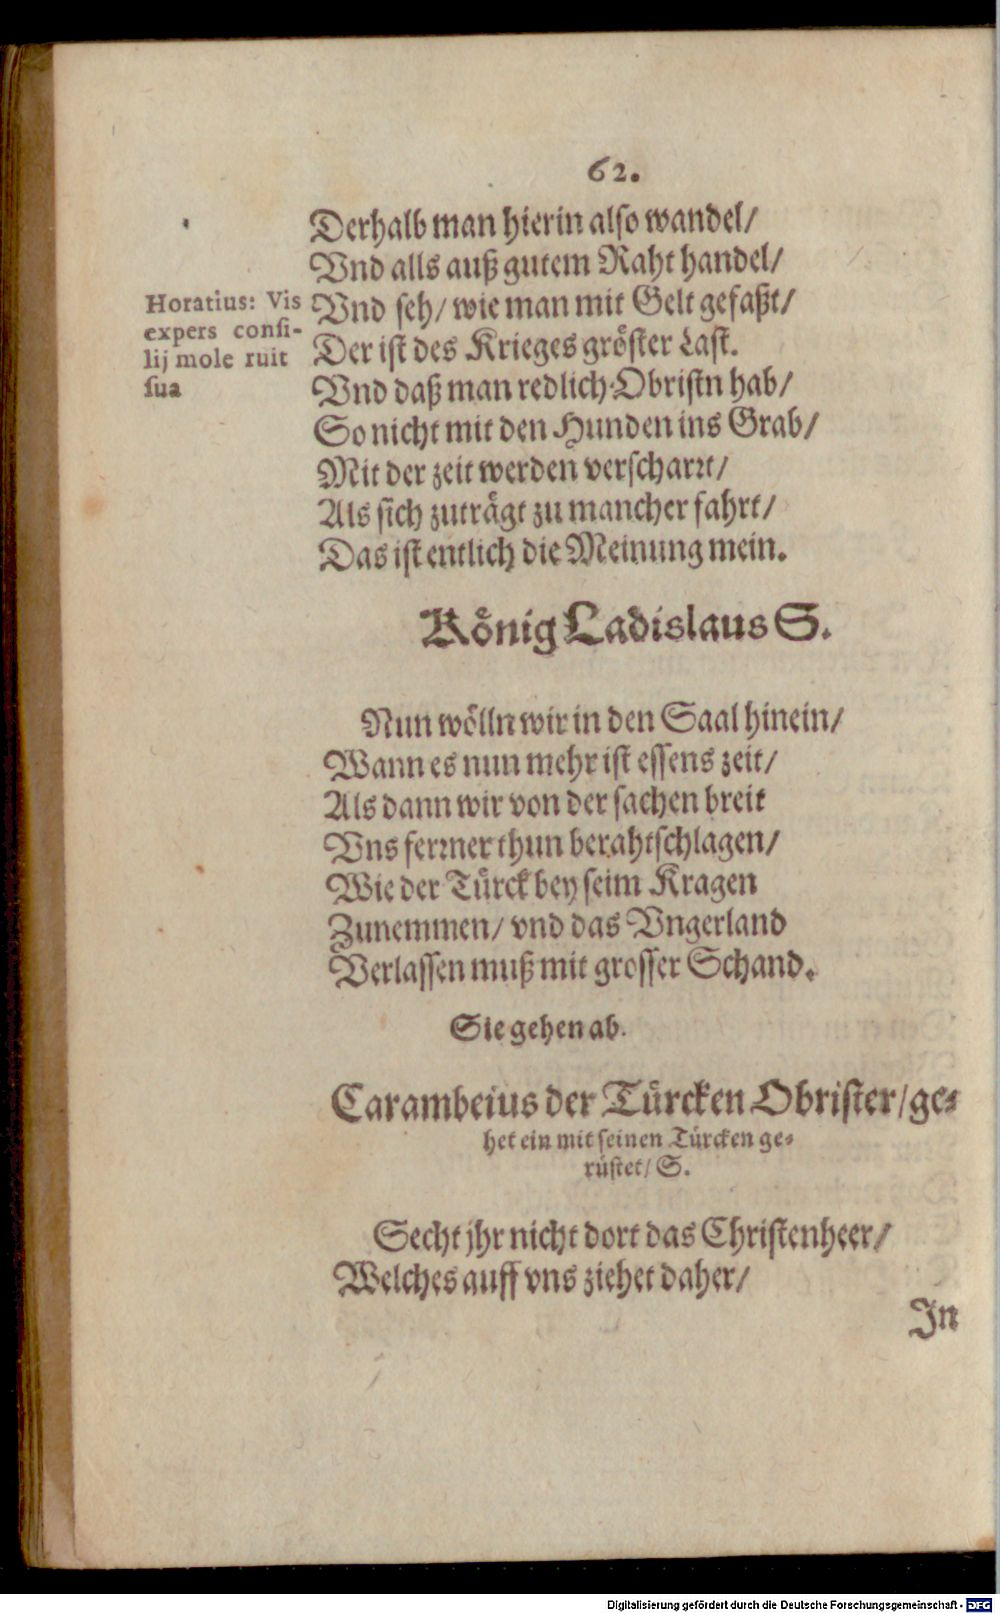 62.
Derhalb man hierin also wandel/
Vnd alls auß gutem Raht handel/
Horatius: Vis
expers consi-
lij mole ruit
sua
Vnd seh/ wie man mit Gelt gefaßt/
Der ist des Krieges gröster Last.
Vnd daß man redlich Obristn hab/
So nicht mit den Hunden ins Grab/
Mit der zeit werden verscharrt/
Als sich zuträgt zu mancher fahrt/
Das ist entlich die Meinung mein.
König Ladislaus S.
Nun wölln wir in den Saal hinein/
Wann es nun mehr ist essens zeit/
Als dann wir von der sachen breit
Vns ferrner thun berahtschlagen/
Wie der Türck bey seim Kragen
Zunemmen/ vnd das Vngerland
Verlassen muß mit grosser Schand.
Sie gehen ab.
Carambeius der Türcken Obrister/ ge-
het ein mit seinen Türcken ge-
rüstet/ S.
Secht jhr nicht dort das Christenheer/
Welches auff vns ziehet daher/
In
Digitalisierung gefördert durch die Deutsche Forschungsgemeinschaft - DFG